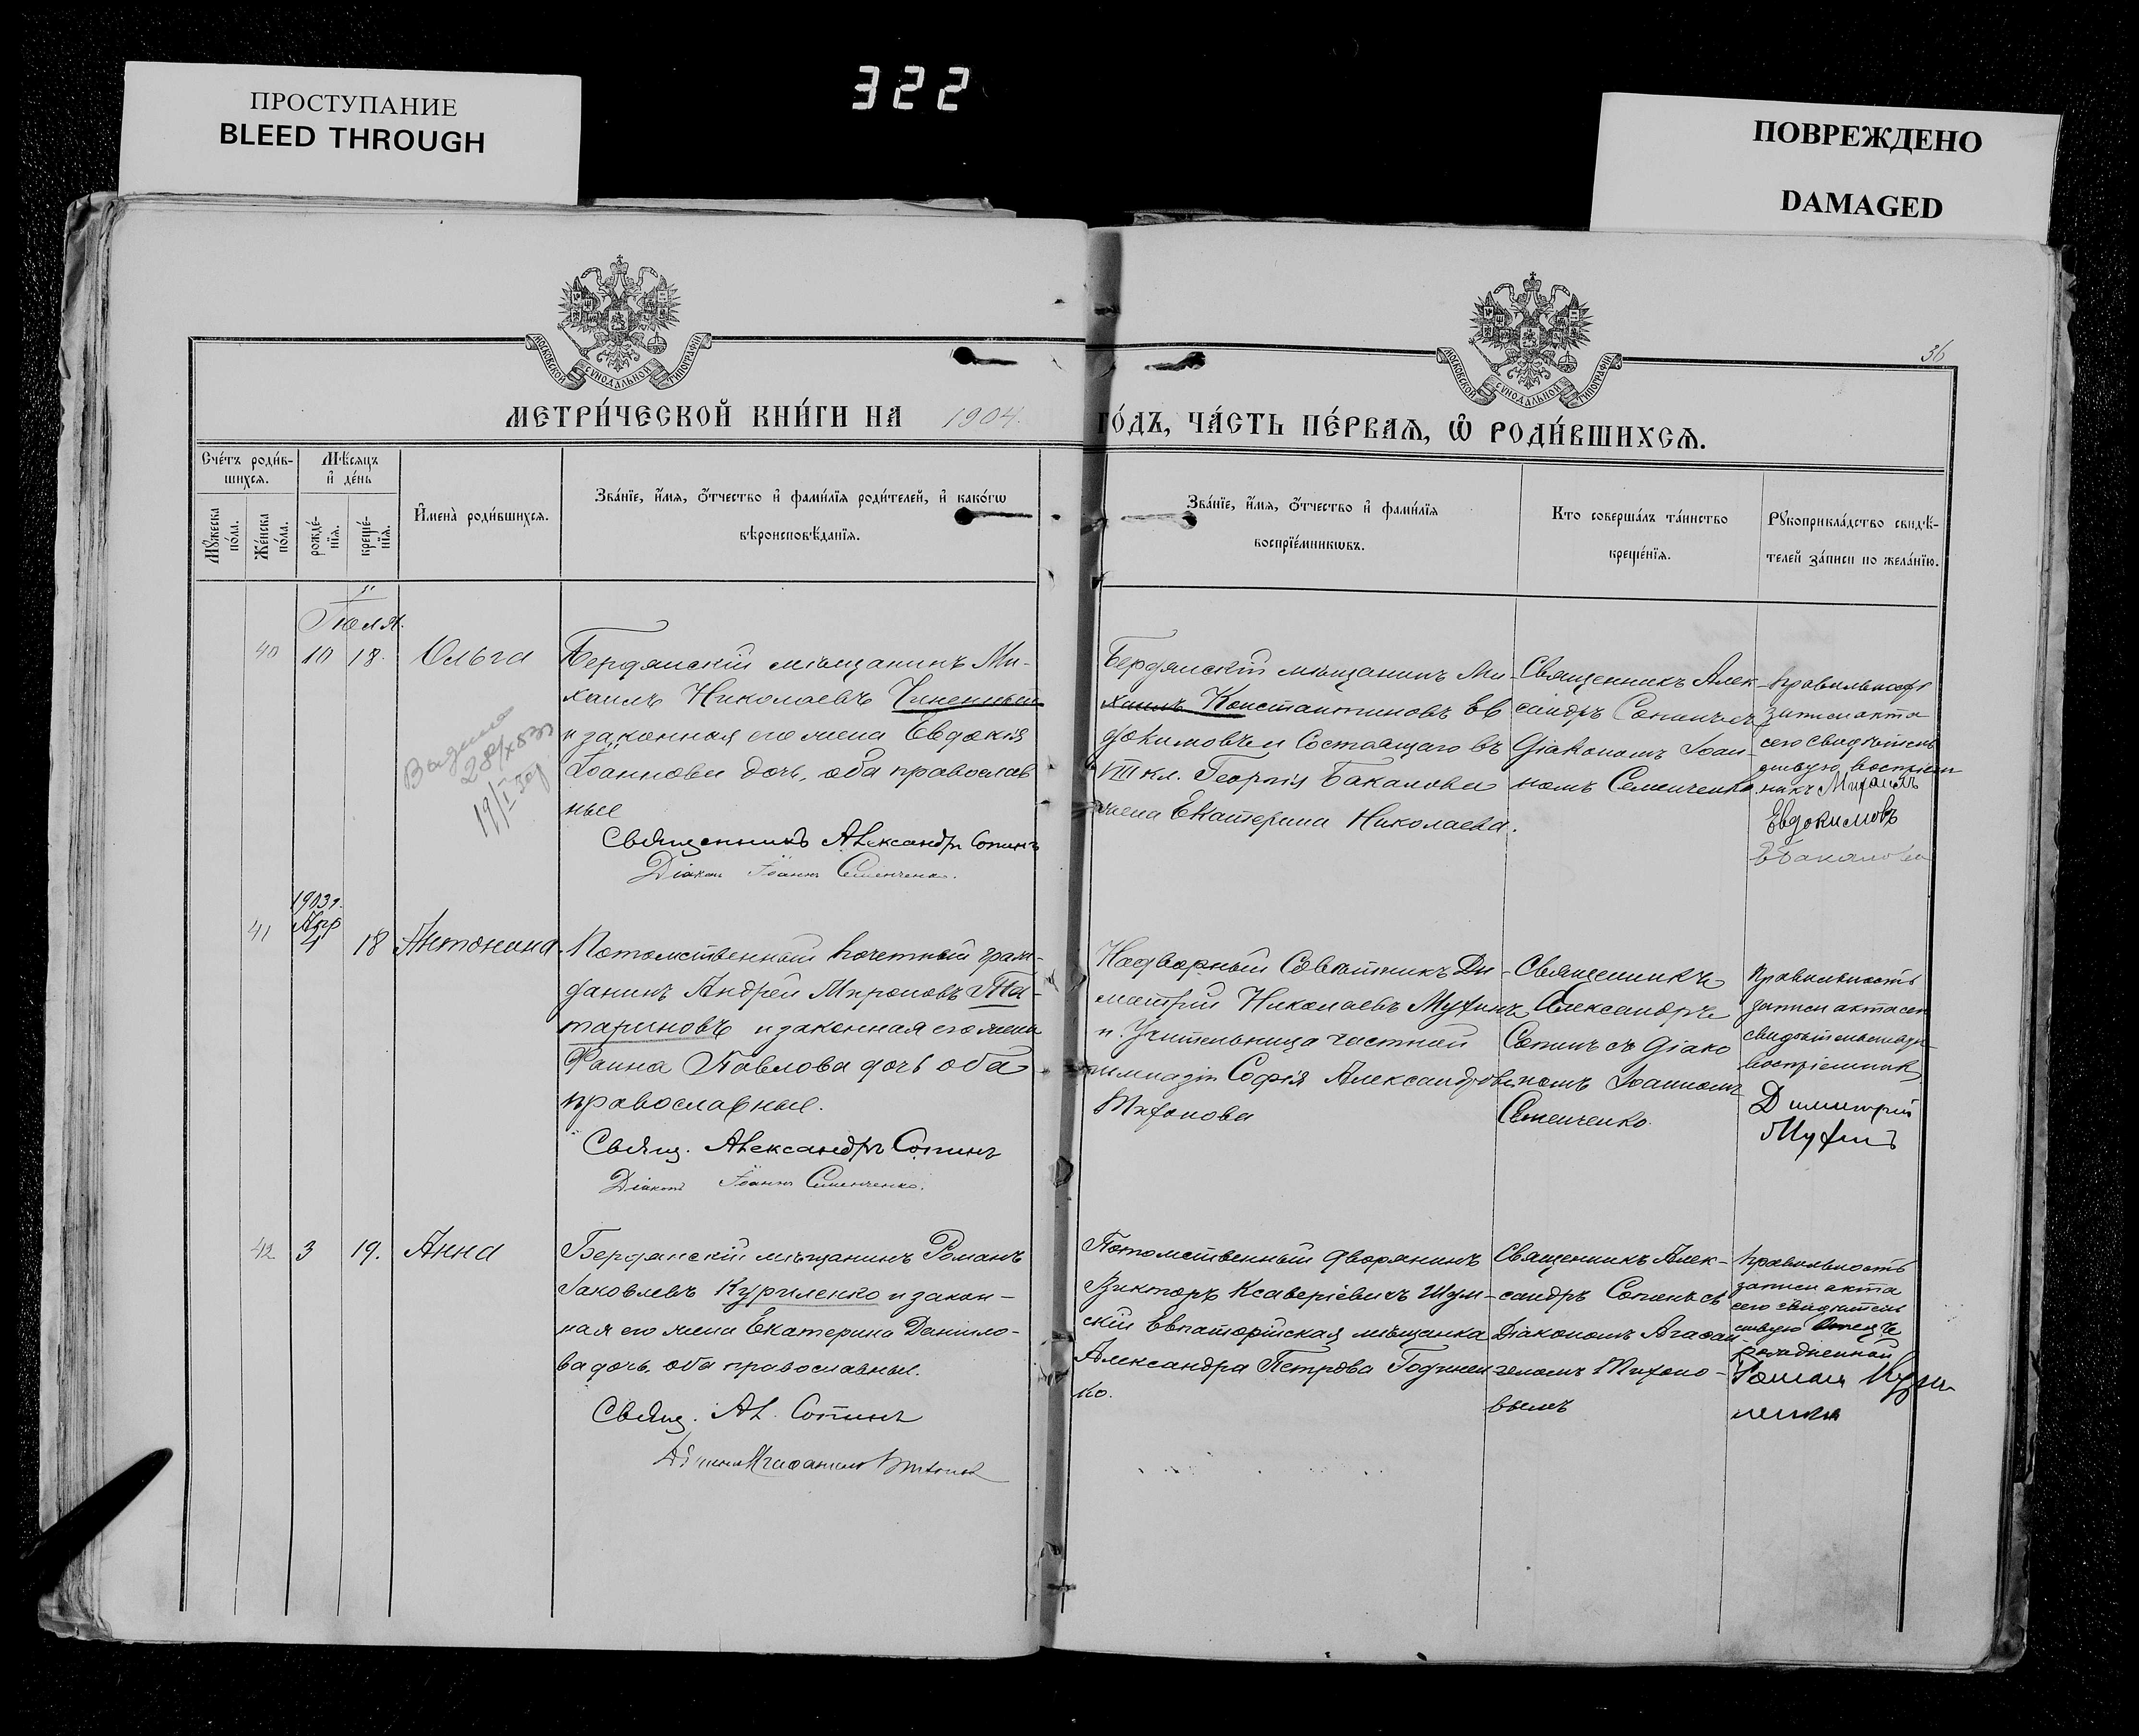 322
ПРОСТУПАНИЕ
BLEED THROUGH
ПОВРЕЖДЕНО
DAMAGED
МОСКОВСКОЙ СѴНОДАЛЬНОЙ ТИПОГРАФІИ
МОСКОВСКОЙ СѴНОДАЛЬНОЙ ТИПОГРАФІИ
36
МЕТРИ́ЧЕСКОЙ КНИ́ГИ НА 1904. ГО́ДЪ, ЧА́СТЬ ПЕ́РВАѦ, Ѡ҆ РОДИ́ВШИХСѦ.
Сче́тъ роди́в-
шихсѧ.
Мѣ́сѧцъ
и҆ де́нь
Мꙋ́жеска
по́ла.
Же́нска
по́ла.
рожде́-
нїѧ.
креще́-
нїѧ.
И҆мена̀ роди́вшихсѧ.
Зва́нїе, и҆́мѧ, ѻ҆́тчество и҆ фами́лїѧ роди́телей, и҆ како́гѡ
вѣроисповѣ́данїѧ.
Зва́нїе, и҆́мѧ, ѻ҆́тчество и҆ фами́лїѧ
воспрїе́мникѡвъ.
Кто соверша́лъ та́инство
креще́нїѧ.
Рꙋкоприкла́дство свидѣ́-
телей за́писи по жела́нїю.
Іюля.
40 10 18. Ольга
Бердянскій мѣщанинъ Ми-
хаилъ Николаевъ
и законная его жена Евдокія
Іоаннова дочь, оба православ
ные
Священникъ Александръ Сопинъ
Діаконъ Іоаннъ Семенченко.
Выдана
19/I
Бердянскій мѣщанинъ Ми-
хаилъ Константиновъ Ев
докимовъ и Состоящаго въ
VIII кл. Георгія Бакалова
жена Екатерина Николаева.
Священникъ Алек-
сандръ Сопинъ съ
Діакономъ Іоан
номъ Семенченко.
Правильность
записи акта
сего свидѣтель
ствую воспріем
никъ Михаилъ
Евдокимовъ
Е Бакалова
1903г.
Апр
41 4 18 Антонина
Потомственный почетный граж-
данинъ Андрей Мироновъ Та-
тариновъ и законная его жена
Фаина Павлова дочь оба
православные.
Свящ. Александръ Сопинъ
Діаконъ Іоаннъ Семенченко.
Надворный Совѣтникъ Ди-
митрій Николаевъ Мухинъ
и Учительница частной
гимназіи Софія Александрова
Тихонова
Священникъ
Александръ
Сопинъ съ Діако
номъ Іоанномъ
Семенченко.
Правильность
записи акта сего
свидѣтельствую
воспріемникъ
Димитрій
Мухинъ
42 3 19. Анна
Бердянскій мѣщанинъ Романъ
Іаковлевъ Куриленко и закон-
ная его жена Екатерина Данило-
ва дочь, оба православные.
Свящ. Ал. Сопинъ
Потомственный дворянинъ
Викторъ Ксаверіевичъ Шум-
скій Евпаторійская мѣщанка
Александра Петрова
ко.
Священникъ Алек-
сандръ Сопинъ съ
Діакономъ Агафан-
геломъ Тихоно-
вымъ
Правильность
записи акта
сего свидѣтель
ствую Отецъ
рожденной
Роман Кури
ленко